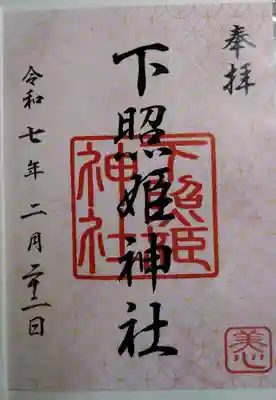 奉拝
下照姫神社
下照姫
神社
令和七年二月二十一日